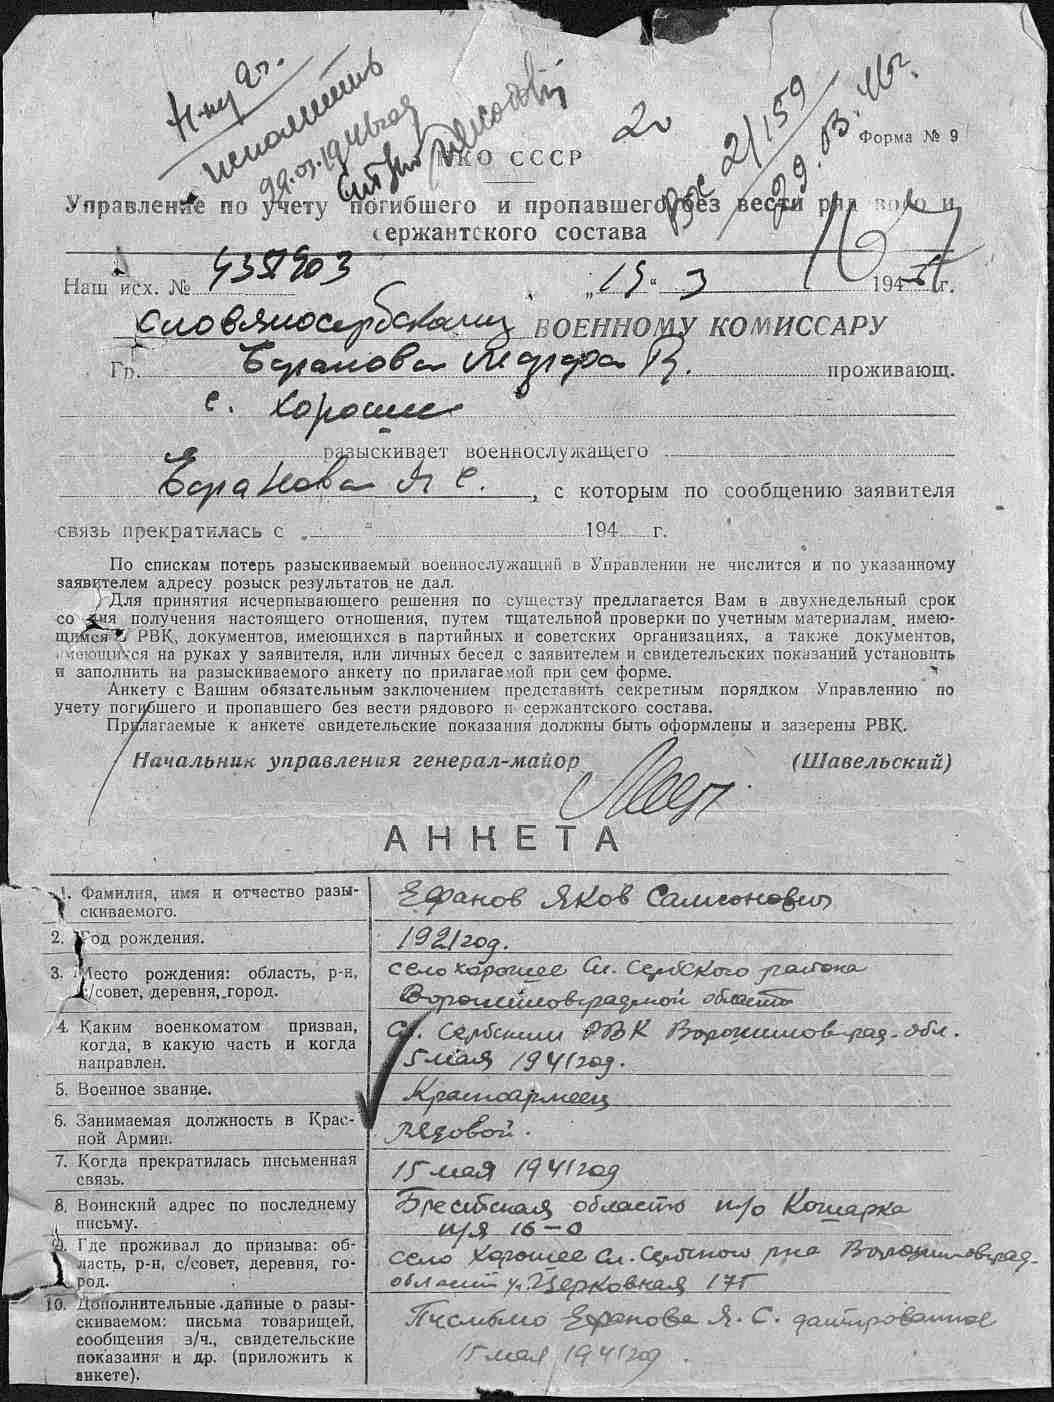 исполнить
20
Вх 2/159
29.03.46г.
Форма № 9
НКО СССР
Управление по учету погибшего и пропавшего без вести рядового и
сержантского состава
Наш исх. № 
„15“ 3 194 г.
Словяносербскому ВОЕННОМУ КОМИССАРУ
Гр. проживающ.
с. Хорошее
разыскивает военнослужащего
Я С. , с которым по сообщению заявителя
связь прекратилась с „ “ 194 г.
По спискам потерь разыскиваемый военнослужащий в Управлении не числится и по указанному
заявителем адресу розыск результатов не дал.
Для принятия исчерпывающего решения по существу предлагается Вам в двухнедельный срок
со дня получения настоящего отношения, путем тщательной проверки по учетным материалам, имею-
щимся в РВК, документов, имеющихся в партийных и советских организациях, а также документов,
имеющихся на руках у заявителя, или личных бесед с заявителем и свидетельских показаний установить
и заполнить на разыскиваемого анкету по прилагаемой при сем форме.
Анкету с Вашим обязательным заключением представить секретным порядком Управлению по
учету погибшего и пропавшего без вести рядового и сержантского состава.
Прилагаемые к анкете свидетельские показания должны быть оформлены и заверены РВК.
Начальник управления генерал-майор (Шавельский)
АНКЕТА
1. Фамилия, имя и отчество разы-
скиваемого.
Ефанов Яков Самсонович
2. Год рождения.
1921 год.
3. Место рождения: область, р-н,
с/совет, деревня, город.
село хорошее Сл. Сербского района
Ворошиловградской области
4. Каким военкоматом призван,
когда, в какую часть и когда
направлен.
Сл. Сербским РВК Ворошиловград. обл.
5 мая 1941 год.
5. Военное звание.
Красноармеец
6. Занимаемая должность в Крас-
ной Армии.
рядовой.
7. Когда прекратилась письменная
связь.
15 мая 1941 год
8. Воинский адрес по последнему
письму.
Брестская область п/о Кошарка
п/я 16-0
9. Где проживал до призыва: об-
ласть, р-н, с/совет, деревня, го-
род.
село Хорошее Сл. Сербского р-на Ворошиловград.
области ул. Церковная 17
10. Дополнительные данные о разы-
скиваемом: письма товарищей,
сообщения з/ч., свидетельские
показания и др. (приложить к
анкете).
Письмо Ефанова Я. С. датированное
15 мая 1941 год.